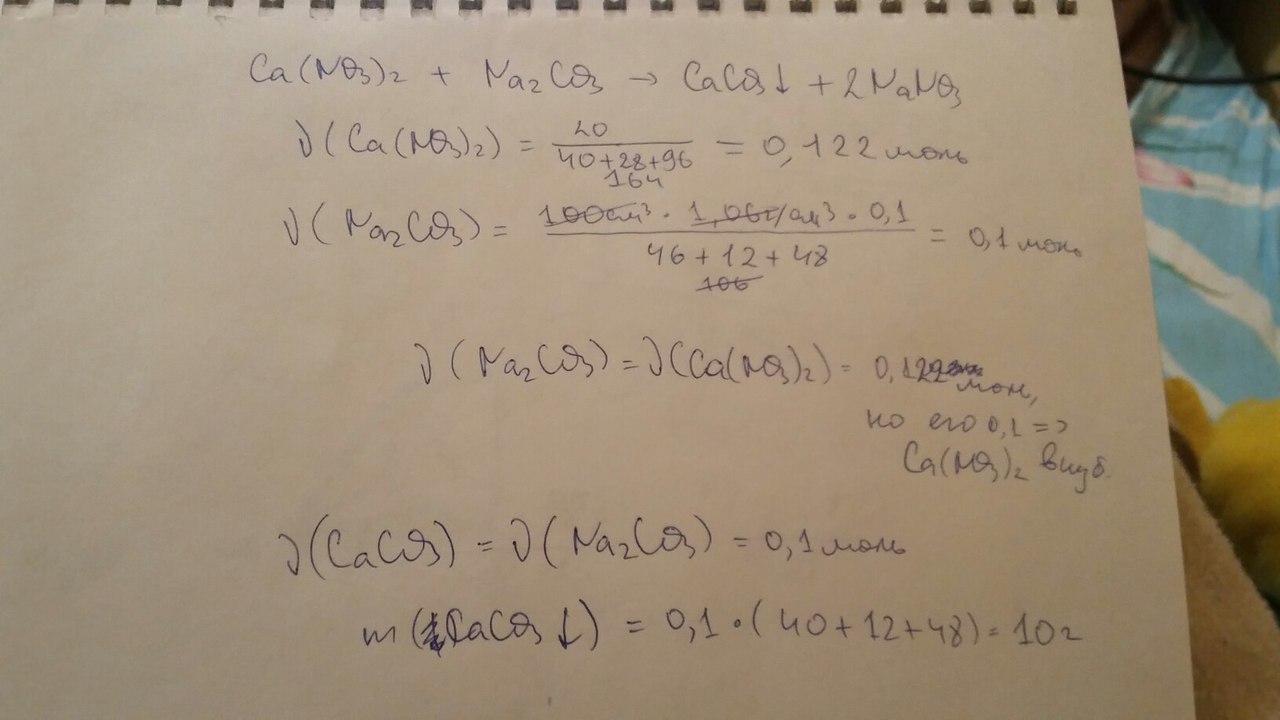 Ca(NO3)2 + Na2CO3 → CaCO3↓ + 2NaNO3
ν(Ca(NO3)2) = 20 / 40+28+96 = 0,122 моль
164
ν(Na2CO3) = 100см³ · 1,06г/см³ · 0,1 / 46+12+48 = 0,1 моль
106
ν(Na2CO3) = ν(Ca(NO3)2) = 0,122 моль,
но его 0,1 =>
Ca(NO3)2 в изб.
ν(CaCO3) = ν(Na2CO3) = 0,1 моль
m(CaCO3↓) = 0,1 · (40+12+48) = 10г